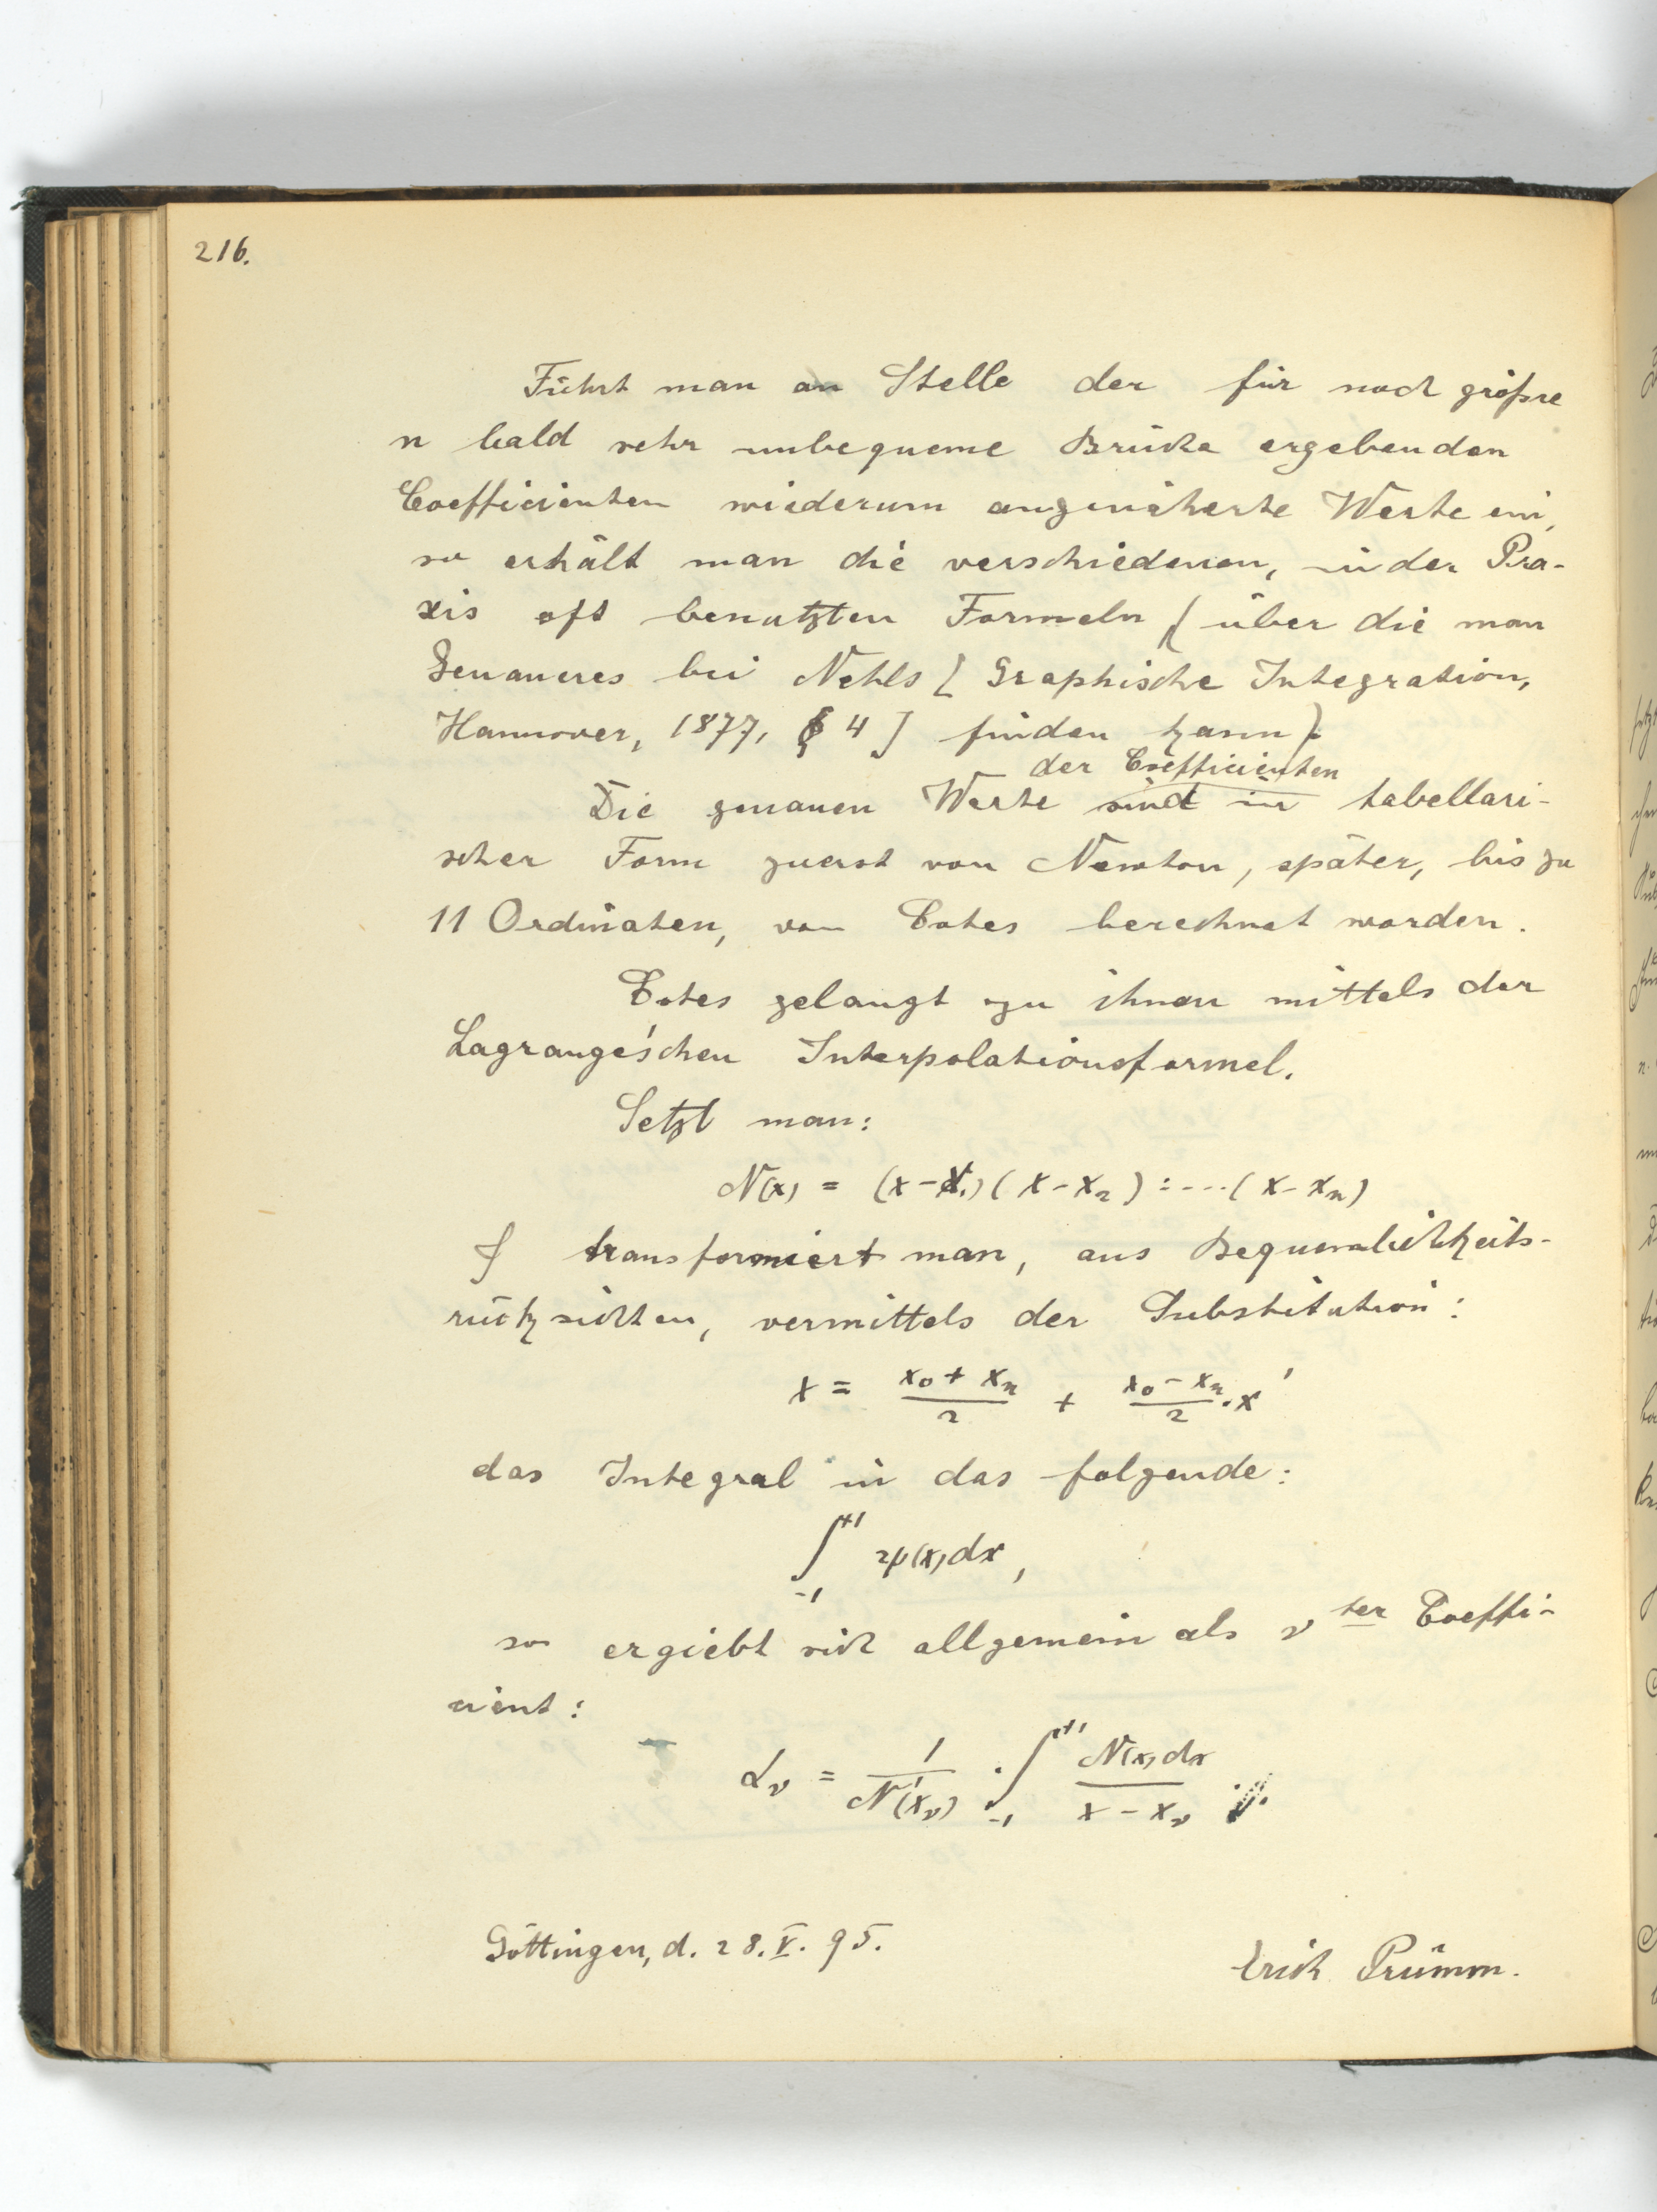 216.
Führt man an Stelle der für noch größre
n bald sehr unbequeme Brüche ergebenden
Coefficienten wiederum angenäherte Werte ein,
so erhält man die verschiedenen, in der Pra-
xis oft benutzten Formeln (über die man
Genaueres bei Nehls [Graphische Integration,
Hannover, 1877, § 4] finden kann).
der Coefficienten
Die genauen Werte sind in tabellari-
scher Form zuerst von Newton, später, bis zu
11 Ordinaten, von Cotes berechnet worden.
Cotes gelangt zu ihnen mittels der
Lagrange'schen Interpolationsformel.
Setzt man:
N(x) = (x-x₁)(x-x₂):....(x-xₙ)
& transformiert man, aus Bequemlichkeits-
rücksichten, vermittels der Substitution:
x = (x₀ + xₙ)/2 + (x₀ - xₙ)/2 . x'
das Integral in das folgende:
∫₋₁⁺¹ ψ(x)dx,
so ergiebt sich allgemein als ν ter Coeffi-
cient:
αν = 1/N'(xν) . ∫₋₁⁺¹ N(x)dx/(x - xν)
Göttingen, d. 28. V. 95.
Erich Prümm.